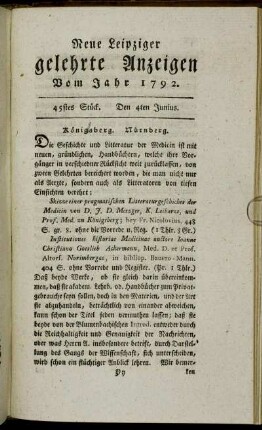 Neue Leipziger
gelehrte Anzeigen
Vom Jahr 1792.
45stes Stück. Den 4ten Junius.
Königsberg. Nürnberg.
Die Geschichte und Litteratur der Medicin ist mit
neuen, gründlichen, Handbüchern, welche ihre Vor-
gänger in verschiedener Rücksicht weit zurücklassen, von
zween Gelehrten bereichert worden, die man nicht nur
als Aerzte, sondern auch als Litteratoren von tiefen
Einsichten verehrt:
Skizze einer pragmatischen Litterairgeschichte der
Medicin von D. J. D. Metzger, K. Leibarzt, und
Prof. Med. zu Königsberg; bey Fr. Nicolovius, 448
S. gr. 8. ohne die Vorrede u. Reg. (1 Thlr. 3 Gr.)
Institutiones historiae Medicinae auctore Ioanne
Christiano Gottlieb Ackermann, Med. D. et Prof.
Altorf. Norimbergae, in bibliop. Bauero-Mann.
404 S. ohne Vorrede und Register. (Pr. 1 Thlr.)
Daß beyde Werke, ob sie gleich darin übereinkom-
men, daß sie akadem. Lehrb. od. Handbücher zum Privat-
gebrauche seyn sollen, doch in den Materien, und der
sie abzuhandeln, beträchtlich von einander abweichen,
kann schon der Titel jeden vermuthen lassen; daß sie
beyde von der Blumenbachischen Introd. entweder durch
die Reichhaltigkeit und Genauigkeit der Nachrichten,
oder was Herrn A. insbesondere betrift, durch Darstel-
lung des Gangs der Wissenschaft, sich unterscheiden,
wird schon ein flüchtiger Anblick lehren. Wir bemer-
Yy ken